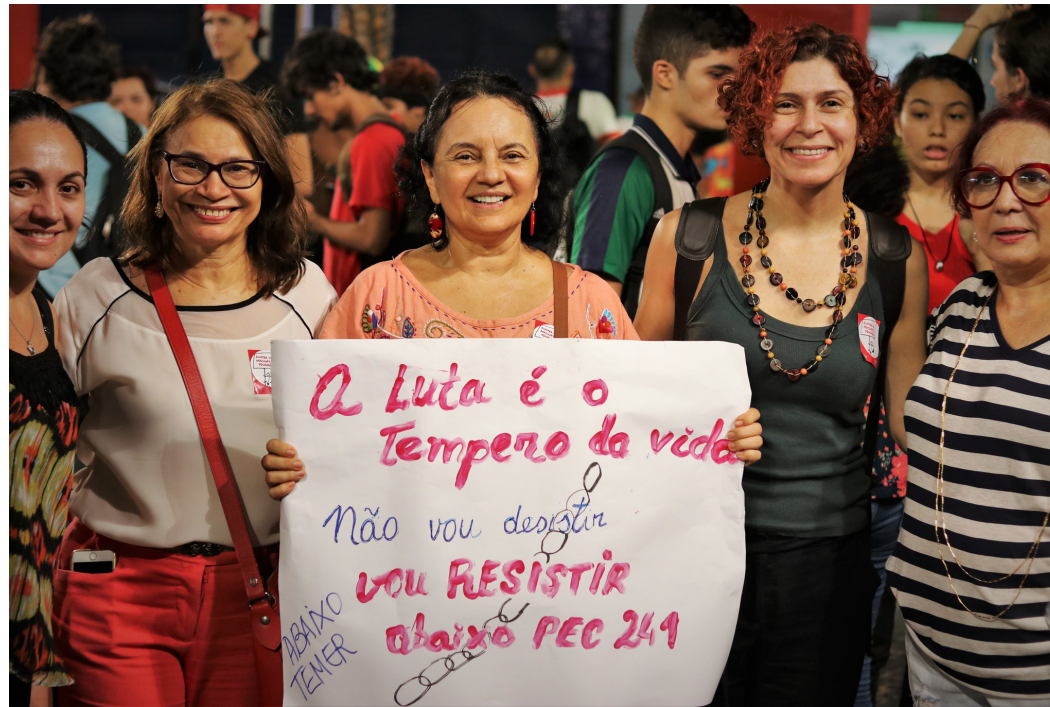 A Luta é o
Tempero da vida
Não vou desistir
vou RESISTIR
abaixo PEC 241
ABAIXO
TEMER